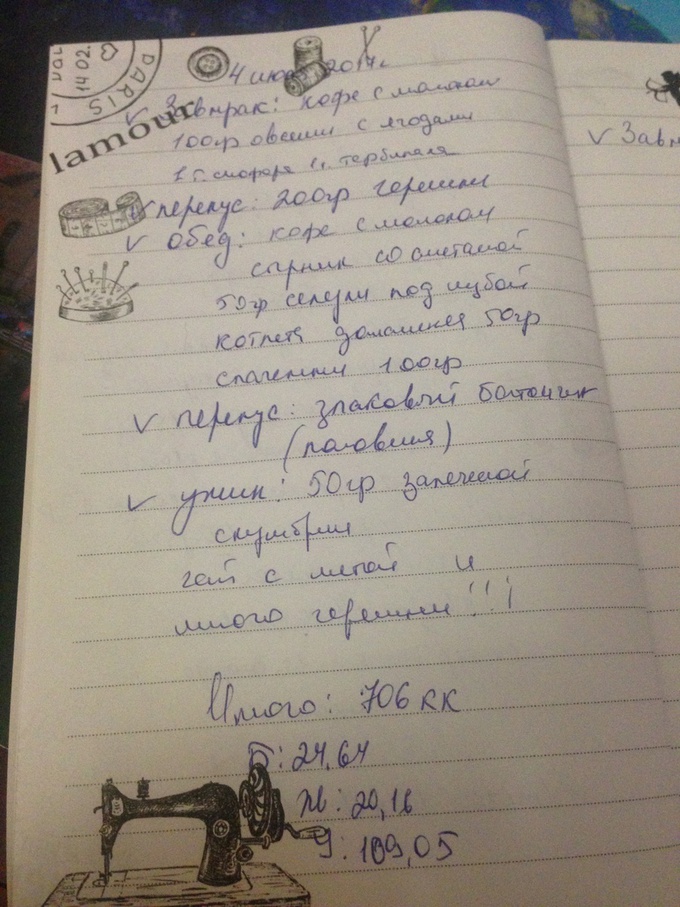 PARIS
14 02.
lamour
4 июня 2017г
✓ Завтрак: кофе с молоком
100гр овсянки с ягодами
✓ перекус: 200гр черешни
✓ обед: кофе с молоком
сырник со сметаной
50гр сельди под шубой
котлета домашняя 50гр
спагетти 100гр
✓ перекус: злаковый батончик
(половина)
✓ ужин: 50гр запеченой
скумбрии
чай с мятой и
много черешни!!!
Итого: 706 кк
Б: 24,64
Ж: 20,16
У: 109,05
✓ Завт